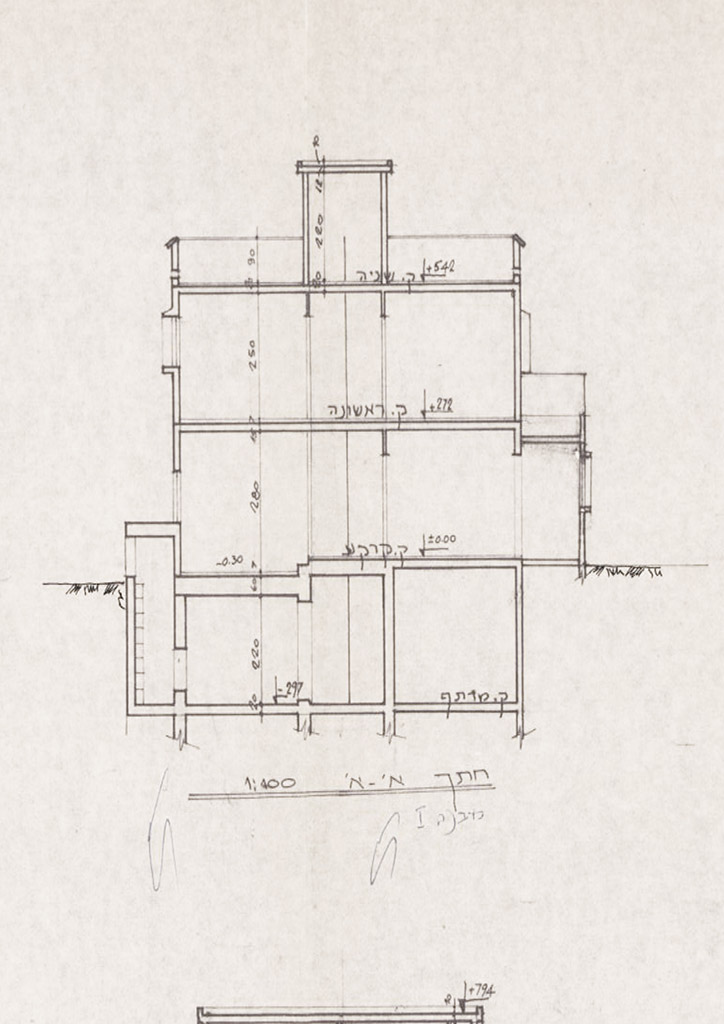 12
220
90
ק. שניה
+542
250
ק. ראשונה
+272
280
ק. קרקע
±0.00
-0.30
60
220
-297
20
ק. מרתף
חתך א'-א' 1:100
I
+794